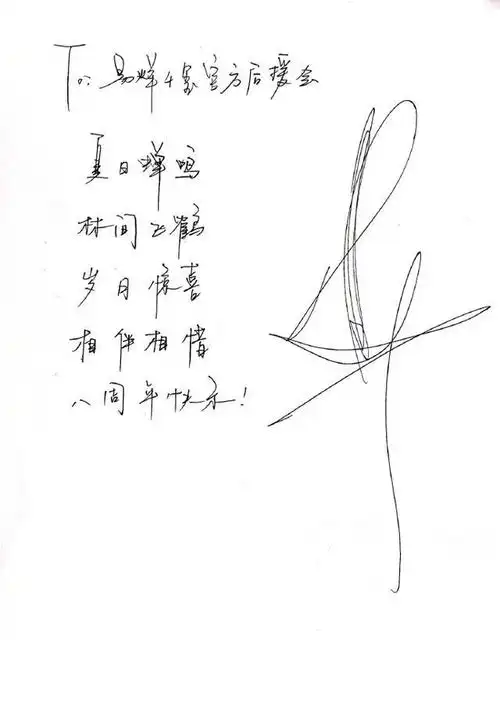 To: 易烊千玺官方后援会
夏日蝉鸣
林间飞鹤
岁日惊喜
相伴相惜
八周年快乐!